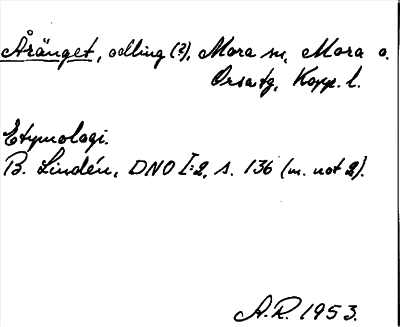 Åränget, odling (?), Mora sn, Mora o.
Orsa tg, Kopp. l.
Etymologi.
B. Lindén, DNO I:2, s. 136 (m. not 2).
A.R. 1953.